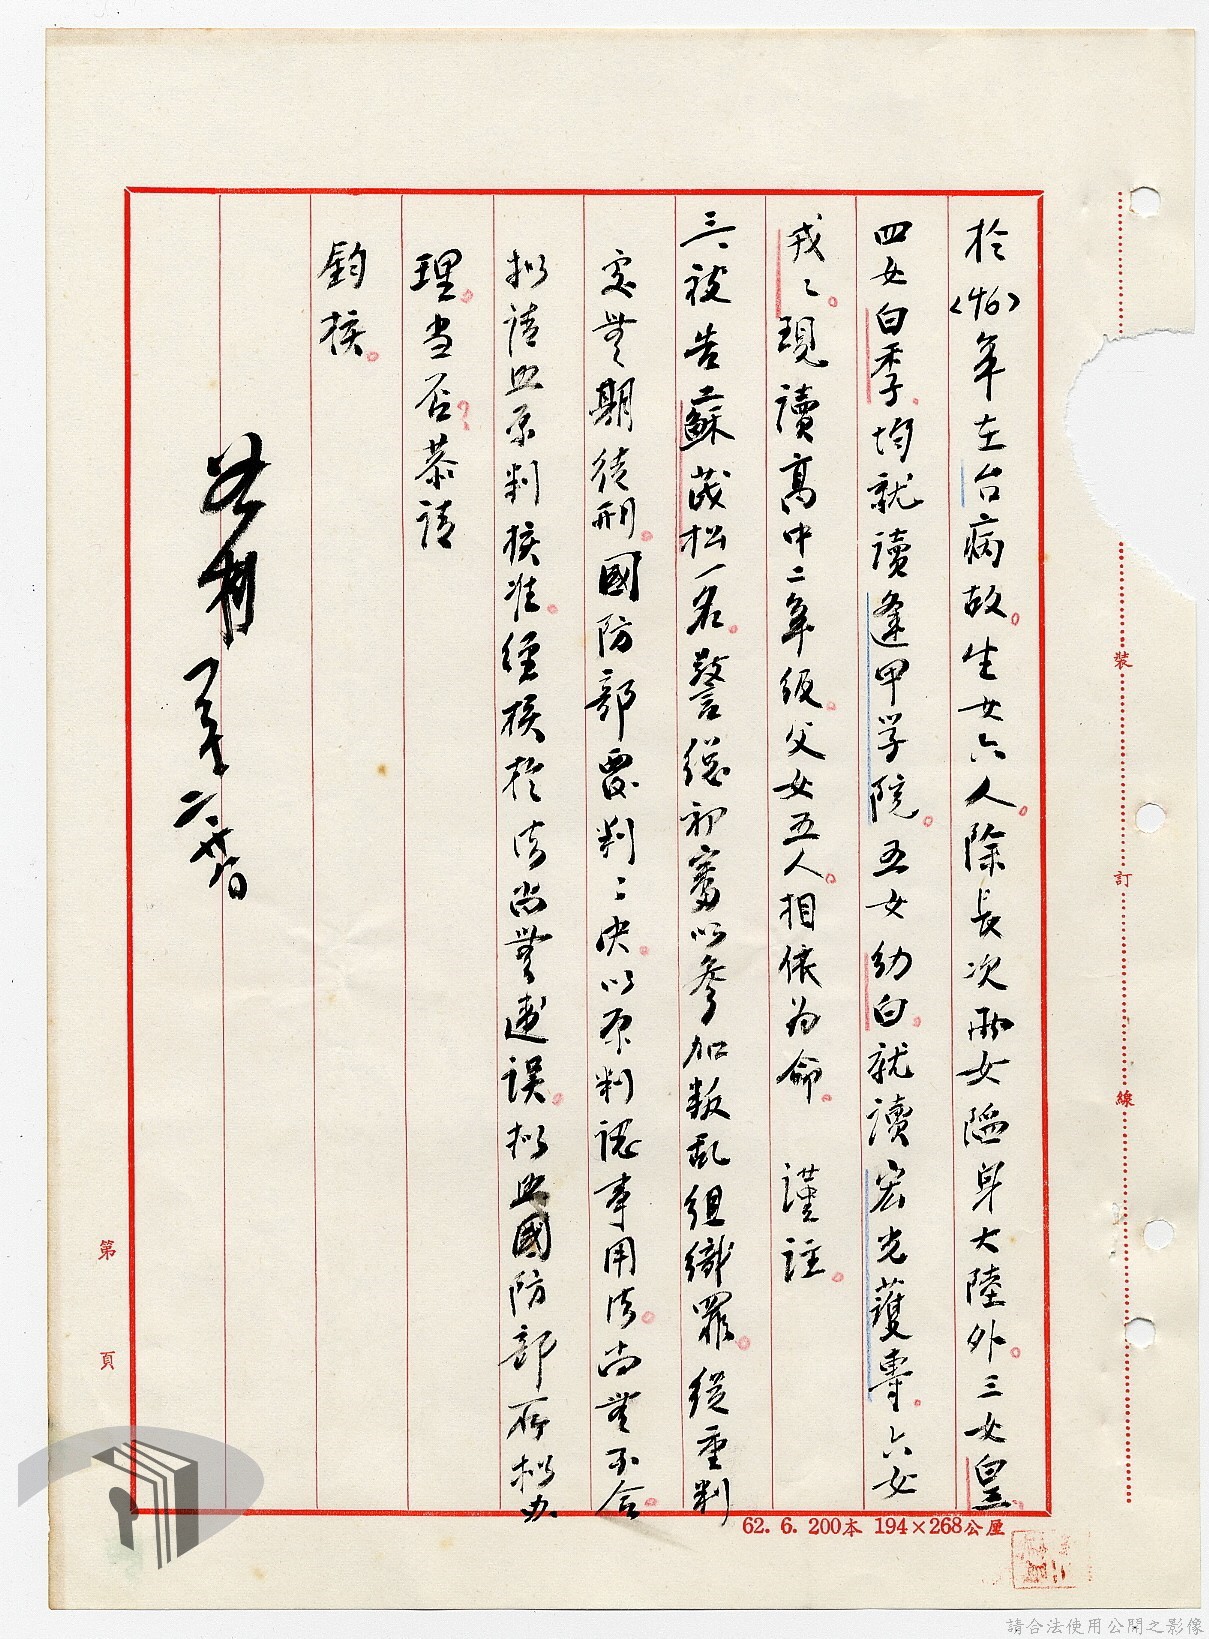 於<46>年在台病故。生女六人。除長次兩女陷身大陸外。三女皇
四女白季、均就讀逢甲学院。五女幼白。就讀宏光護專。六女
戎々。現讀高中二年級。父女五人。相依為命。 謹註。
三、被告蘇茂松一名。警總初審以參加叛乱組織罪。從重判
處無期徒刑。國防部覆判々決。以原判認事用法。尚無不合。
擬請照原判核准。經核於法尚無違誤。擬照國防部所擬办
理。当否？恭請
鈞核。
第 頁
裝 訂 線
62. 6. 200本 194×268公厘
請合法使用公開之影像